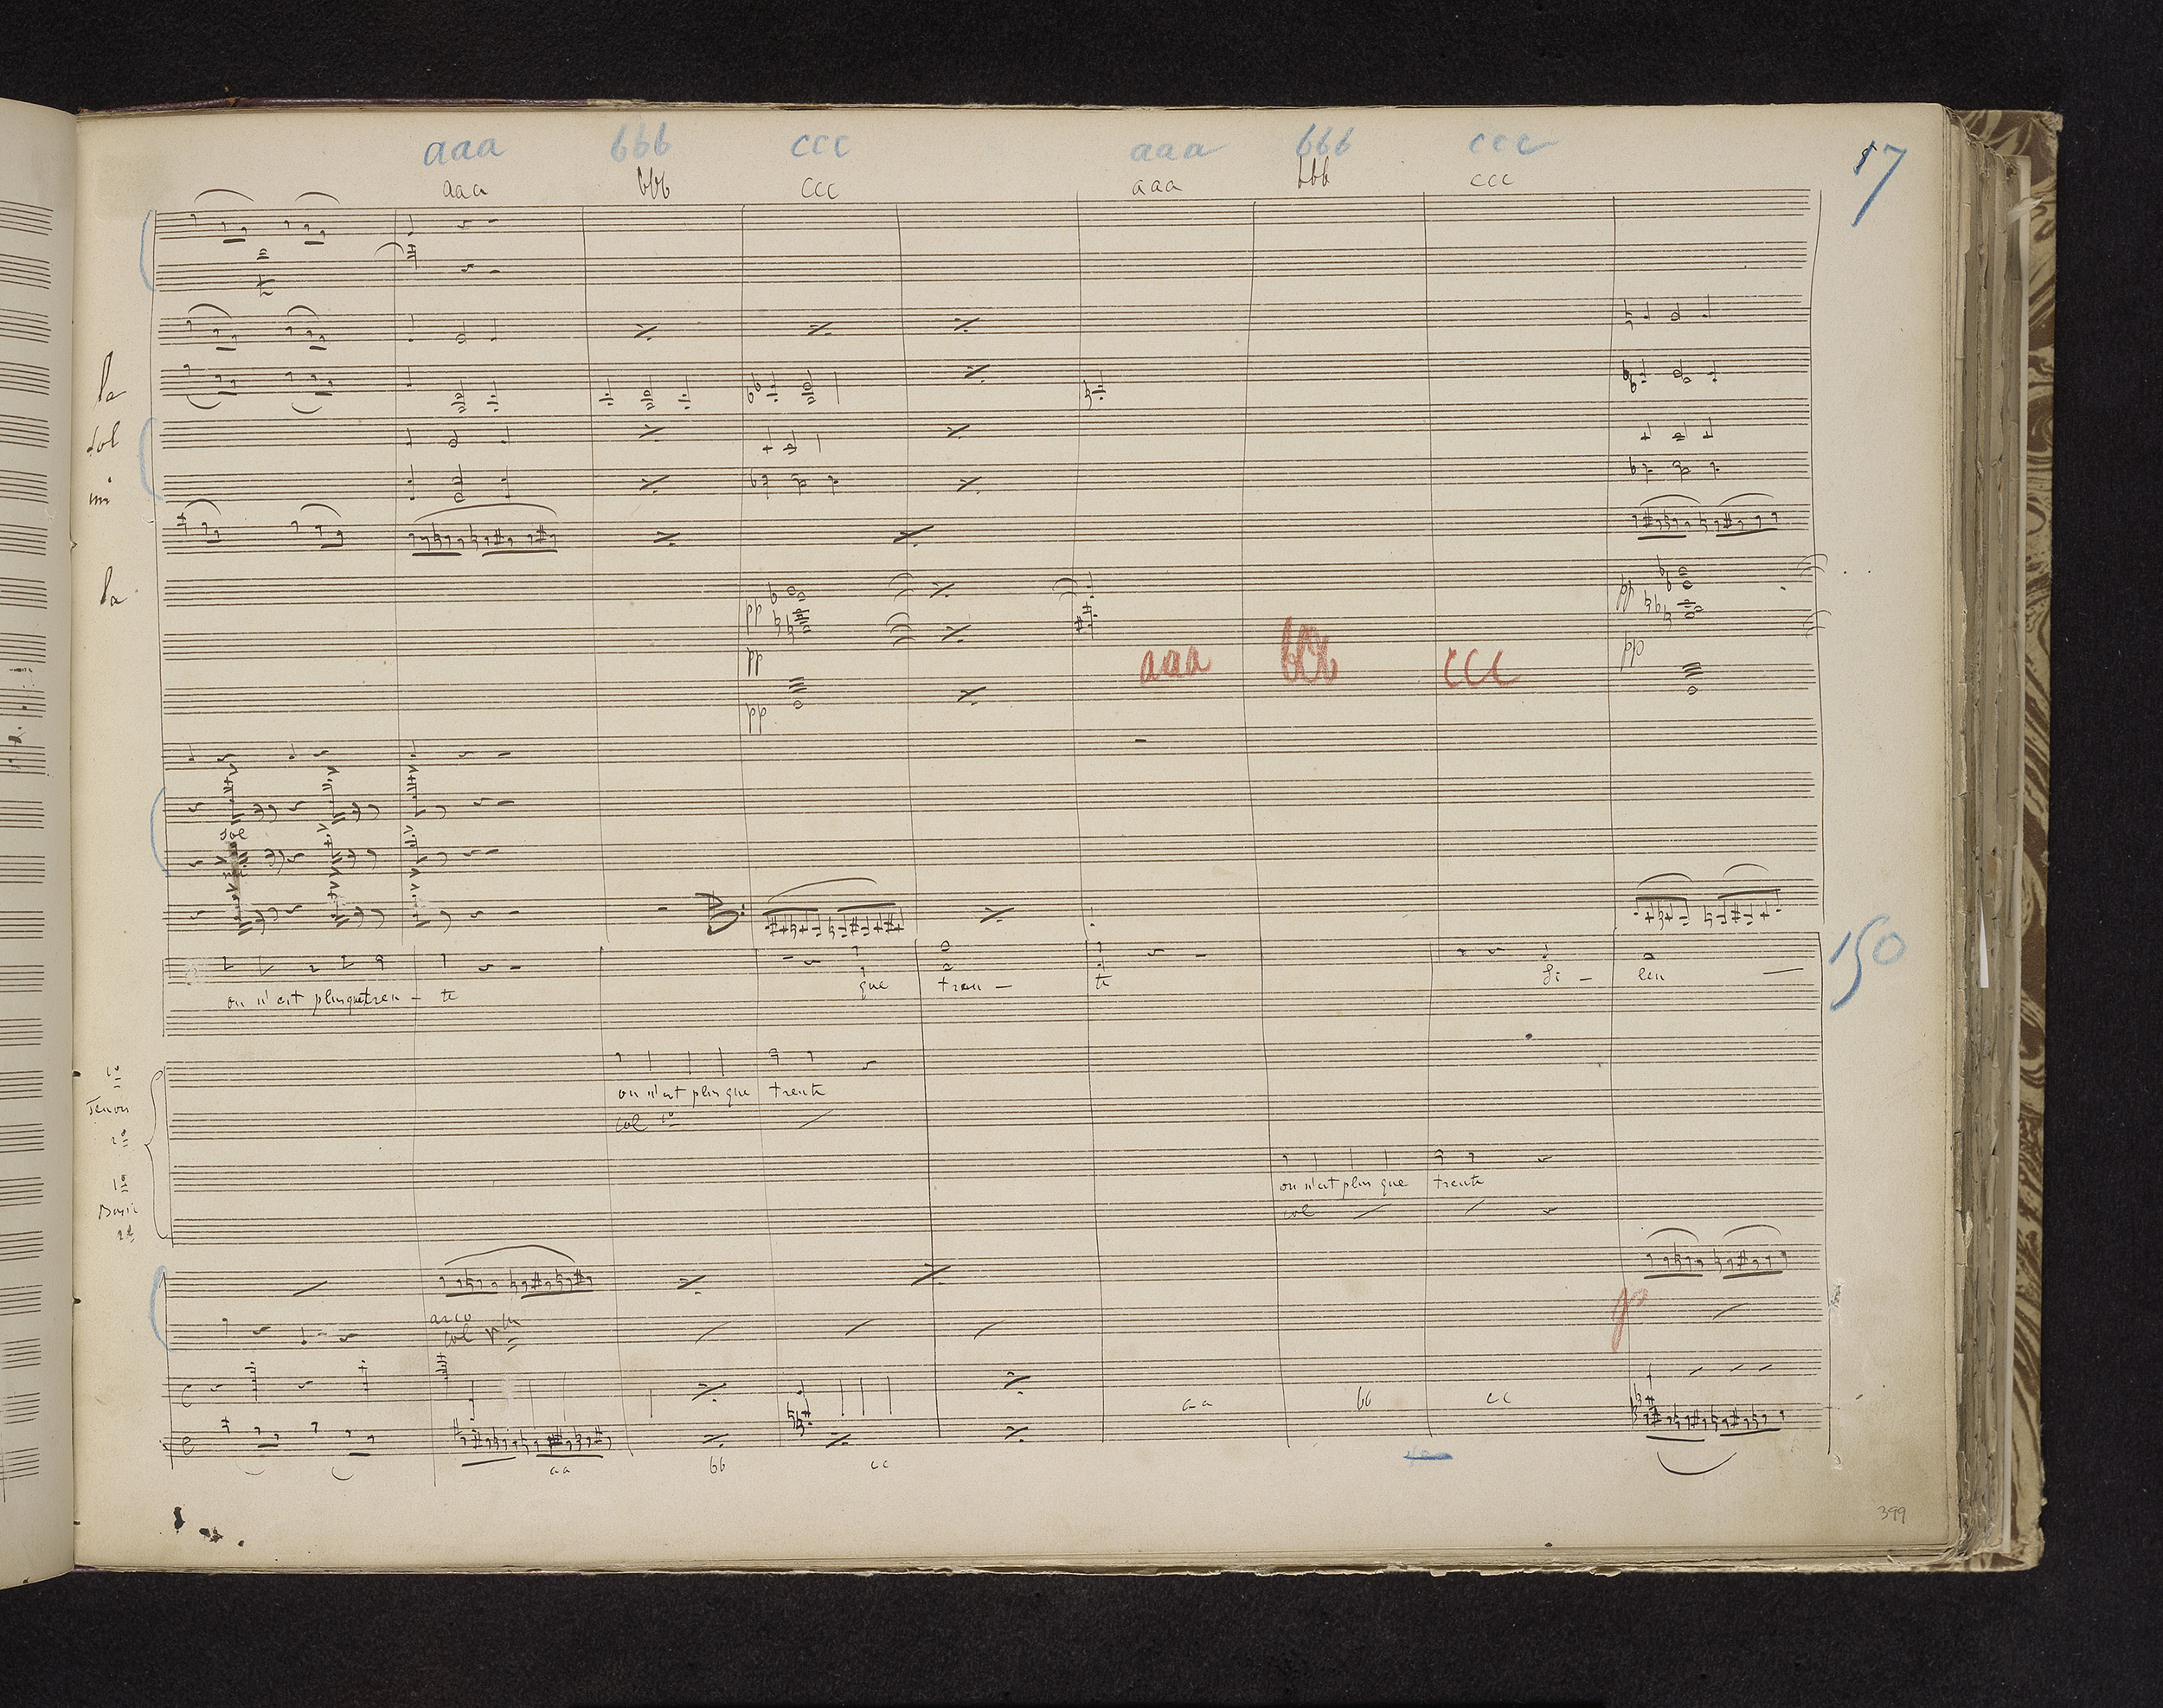 aaa bbb ccc aaa bbb ccc 17
aaa bbb ccc aaa bbb ccc
la
sol
mi
la
pp pp
pp pp
aaa bbb ccc
pp
sol
150
on n'est plus que tren - te que tren - te Si - len
1º
Tenori
2º
on n'est plus que trente
col 1º
1º
Bassi
2º
on n'est plus que trente
col
p
arco
col
aa bb cc
aa bb cc
399